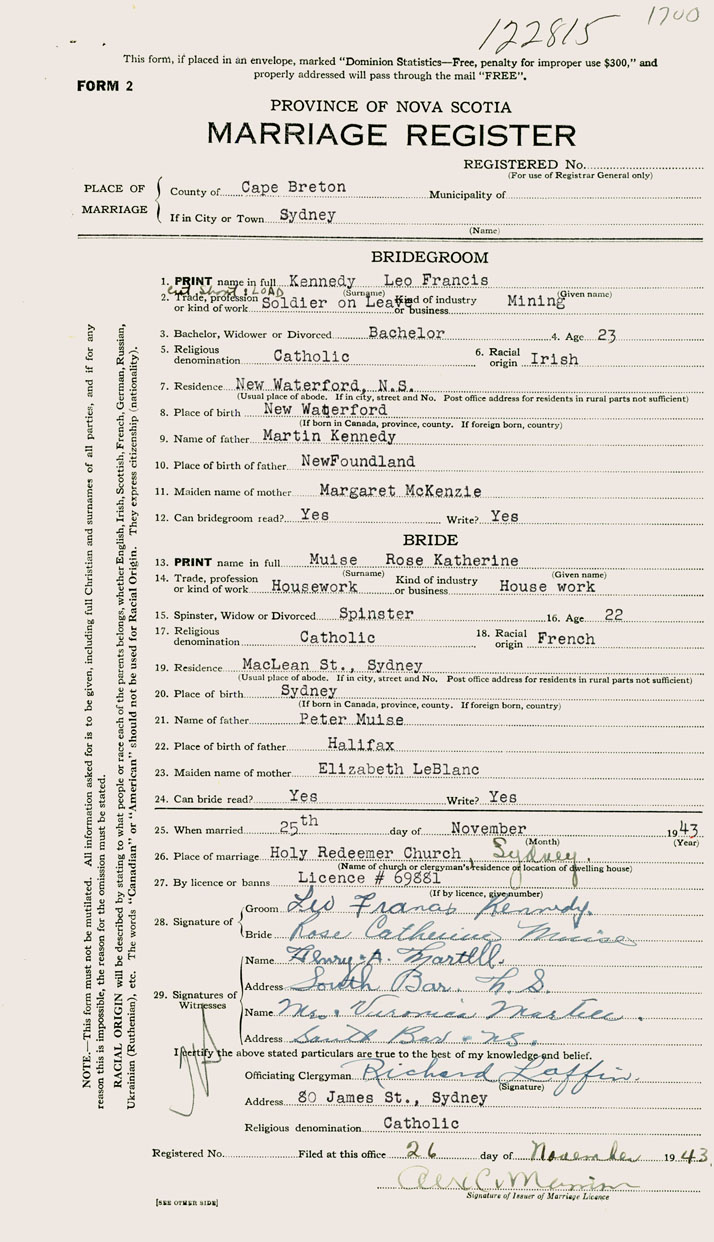 122815 1700
This form, if placed in an envelope, marked “Dominion Statistics—Free, penalty for improper use $300,” and
properly addressed will pass through the mail “FREE”.
FORM 2
PROVINCE OF NOVA SCOTIA
MARRIAGE REGISTER
REGISTERED No.
(For use of Registrar General only)
PLACE OF MARRIAGE
County of Cape Breton Municipality of
If in City or Town Sydney
(Name)
BRIDEGROOM
1. PRINT name in full Kennedy Leo Francis
(Surname) (Given name)
2. Trade, profession or kind of work Soldier on Leave Kind of industry or business Mining
3. Bachelor, Widower or Divorced Bachelor 4. Age 23
5. Religious denomination Catholic 6. Racial origin Irish
7. Residence New Waterford, N.S.
(Usual place of abode. If in city, street and No. Post office address for residents in rural parts not sufficient)
8. Place of birth New Waterford
(If born in Canada, province, county. If foreign born, country)
9. Name of father Martin Kennedy
10. Place of birth of father NewFoundland
11. Maiden name of mother Margaret McKenzie
12. Can bridegroom read? Yes Write? Yes
BRIDE
13. PRINT name in full Muise Rose Katherine
(Surname) (Given name)
14. Trade, profession or kind of work Housework Kind of industry or business House work
15. Spinster, Widow or Divorced Spinster 16. Age 22
17. Religious denomination Catholic 18. Racial origin French
19. Residence MacLean St., Sydney
(Usual place of abode. If in city, street and No. Post office address for residents in rural parts not sufficient)
20. Place of birth Sydney
(If born in Canada, province, county. If foreign born, country)
21. Name of father Peter Muise
22. Place of birth of father Halifax
23. Maiden name of mother Elizabeth LeBlanc
24. Can bride read? Yes Write? Yes
25. When married 25th day of November 1943
(Month) (Year)
26. Place of marriage Holy Redeemer Church, Sydney.
(Name of church or clergyman's residence or location of dwelling house)
27. By licence or banns Licence # 69881
(If by licence, give number)
28. Signature of
Groom Leo Francis Kennedy.
Bride Rose Catherine Muise
29. Signatures of Witnesses
Name Henry A. Martell.
Address South Bar. N.S.
Name Mrs. Veronica Martell.
Address South Bar. N.S.
I certify the above stated particulars are true to the best of my knowledge and belief.
Officiating Clergyman Richard Laffin.
(Signature)
Address 80 James St., Sydney
Religious denomination Catholic
Registered No. Filed at this office 26 day of November 1943.
Signature of Issuer of Marriage Licence
[SEE OTHER SIDE]
NOTE.—This form must not be mutilated. All information asked for is to be given, including full Christian and surnames of all parties, and if for any
reason this is impossible, the reason for the omission must be stated.
RACIAL ORIGIN will be described by stating to what people or race each of the parents belongs, whether English, Irish, Scottish, French, German, Russian,
Ukrainian (Ruthenian), etc. The words “Canadian” or “American” should not be used for Racial Origin. They express citizenship (nationality).